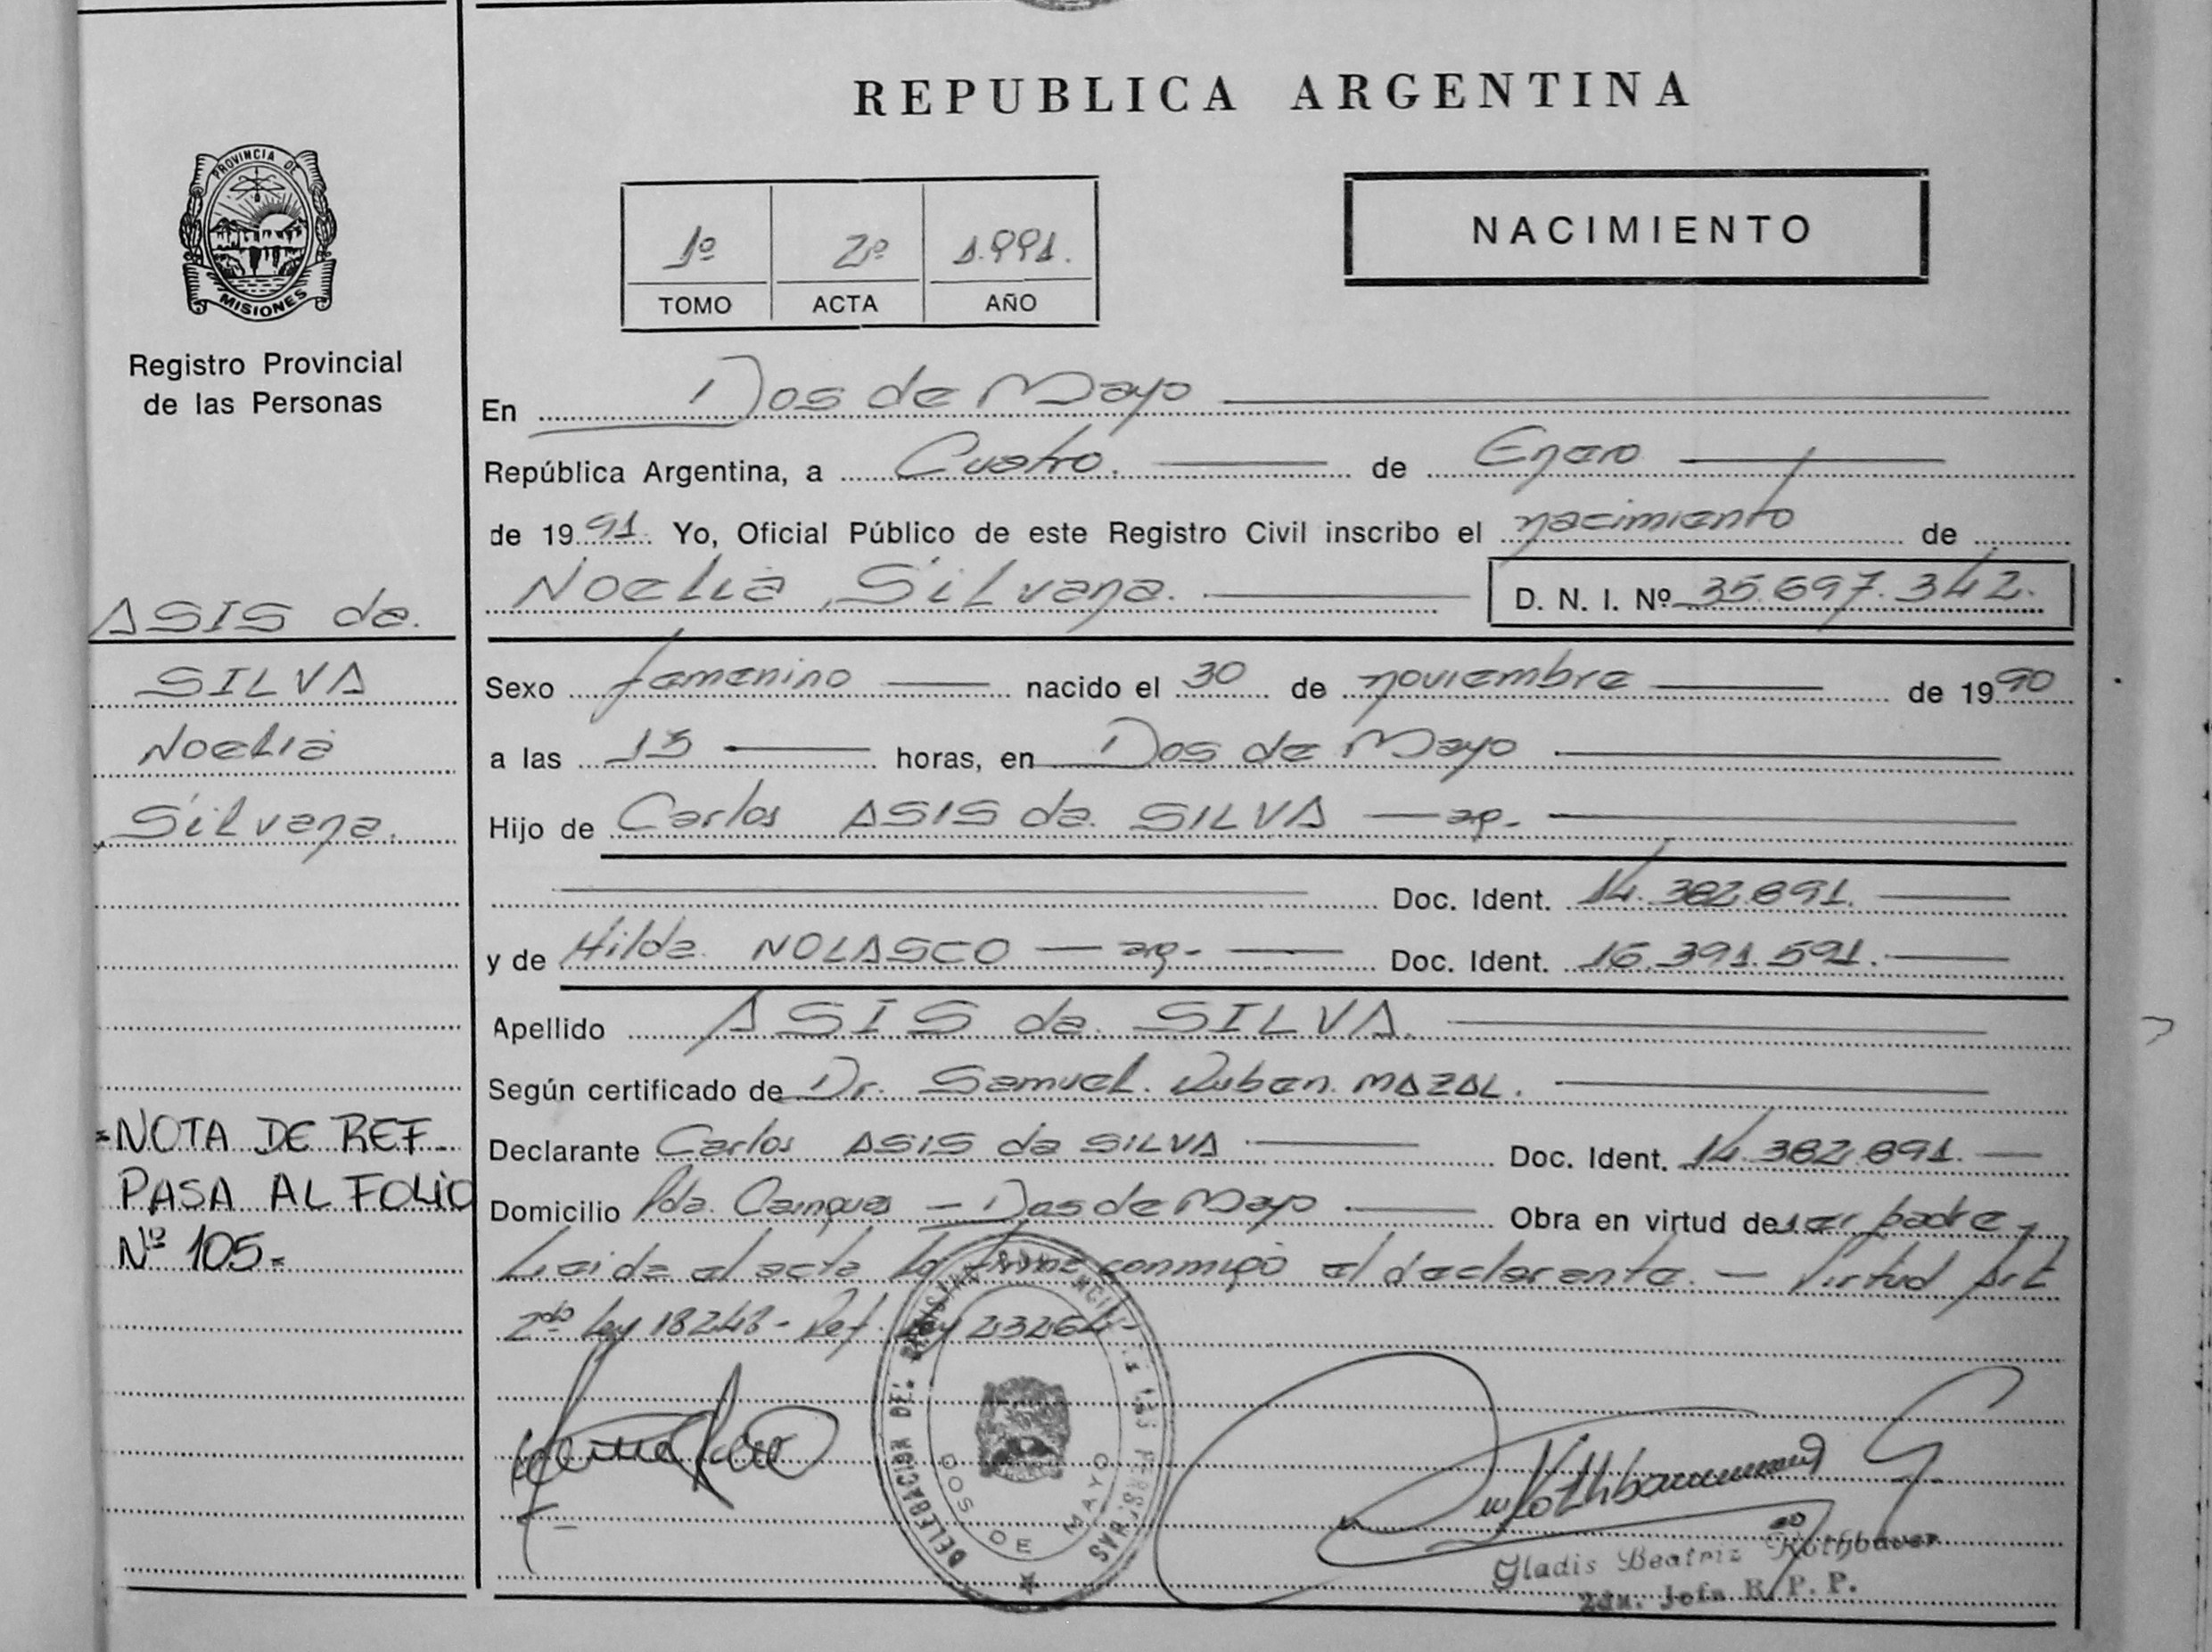 REPUBLICA ARGENTINA
PROVINCIA DE
MISIONES
Registro Provincial
de las Personas
1º 2º 1.991.
TOMO ACTA AÑO
NACIMIENTO
En Dos de Mayo
República Argentina, a Cuatro. de Enero
de 1991. Yo, Oficial Público de este Registro Civil inscribo el nacimiento de
Noelia Silvana. D. N. I. Nº 35.697.342.
ASIS da.
SILVA
Noelia
Silvana.
Sexo femenino nacido el 30 de noviembre de 1990
a las 13 horas, en Dos de Mayo
Hijo de Carlos ASIS da. SILVA — ar.
Doc. Ident. 14.382.891.
y de Hilda. NOLASCO — ar. Doc. Ident. 16.391.591.
Apellido ASIS da. SILVA.
Según certificado de Dr. Samuel. Ruben. MAZAL.
Declarante Carlos ASIS da SILVA Doc. Ident. 14.382.891.
Domicilio Pda. — Dos de Mayo Obra en virtud de ser padre
Leida el acta la firma conmigo el declarante. — Virtud Art
2do Ley 18248 - Ref. Ley 23264-
=NOTA DE REF.
PASA AL FOLIO
Nº 105=
DELEGACION
DOS DE MAYO
Gladis Beatriz Rothbauer
2da. Jefa R. P. P.